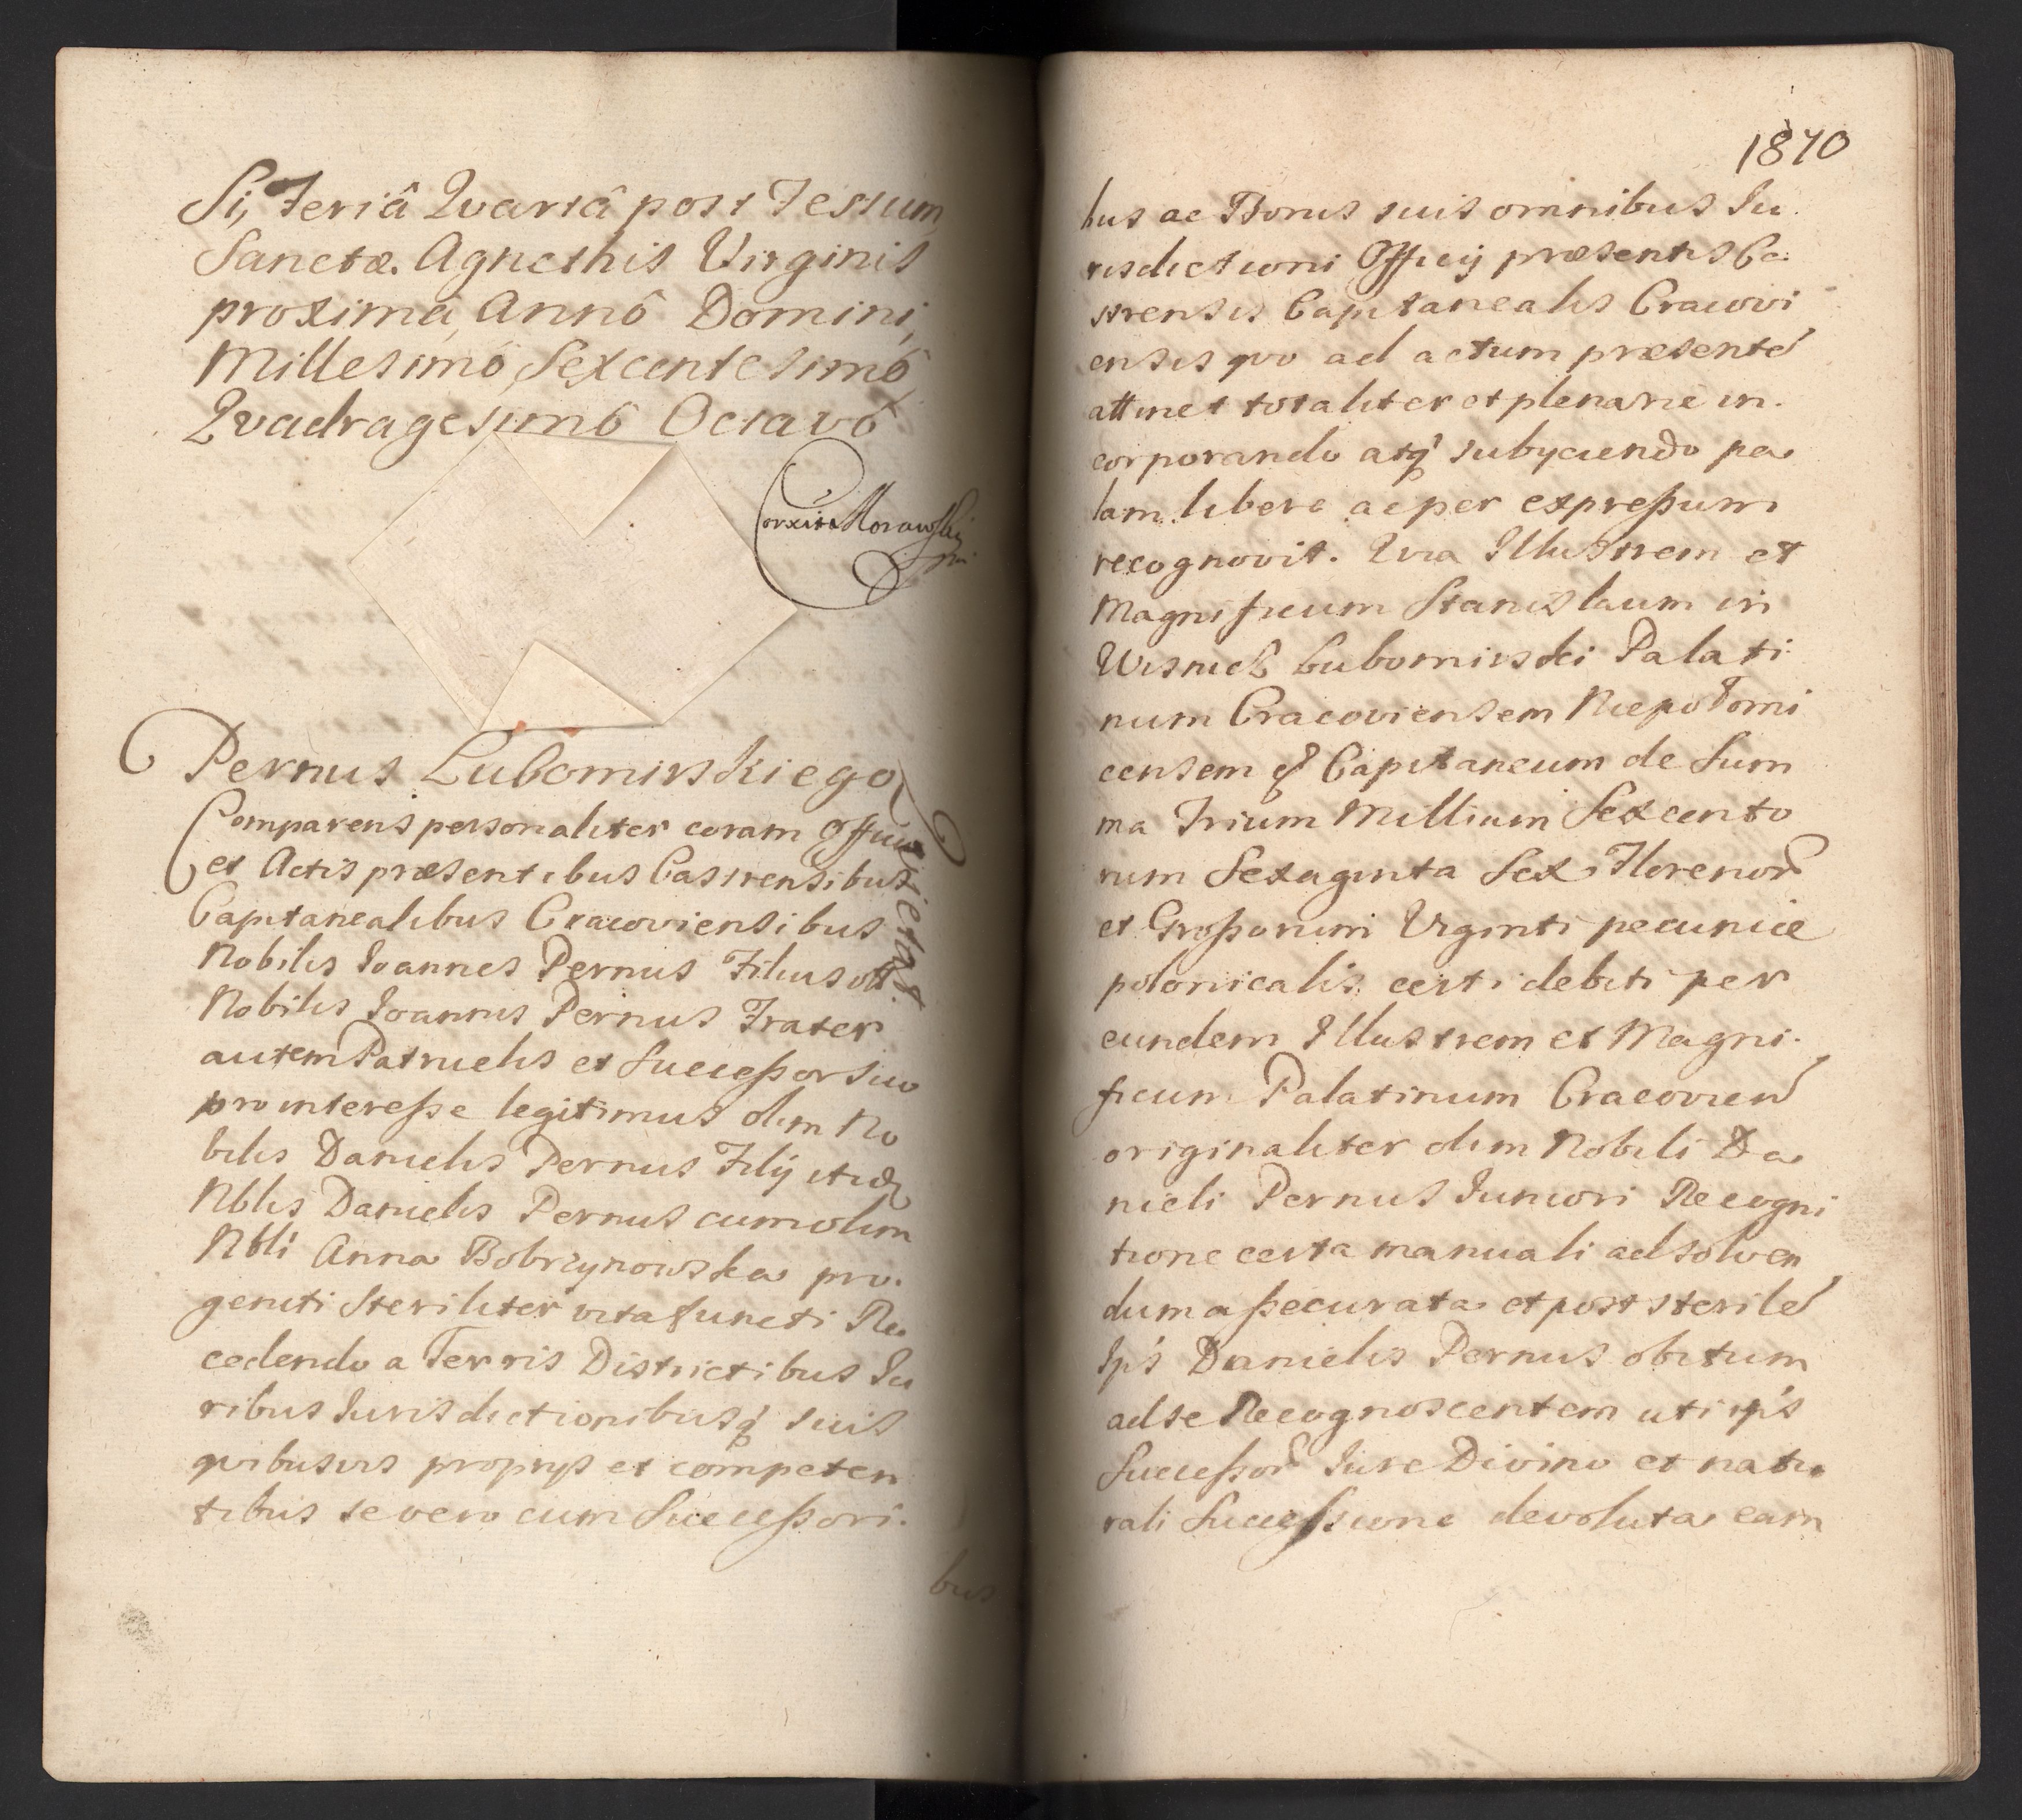 si, Feriâ Qvartâ post Festum
Sanctæ Agnethis Virginis
proximâ, Annô Domini
Millesimô Sexcentesimô
Qvadragesimô Octavô
Pernus Lubomirskiego
qvietat.
Comparens personaliter coram Officio
et Actis præsentibus Castrensibus
Capitanealibus Cracoviensibus
Nobilis Joannes Pernus Filius olim
Nobilis Joannis Pernus Frater
autem Patruelis et Successor suo
pro interesse legitimus olim No
bilis Danielis Pernus Filij itid
Nblis Danielis Pernus cum olim
Nbli Anna Bobrzynowska pro.
geniti steriliter vita functi Re
cedendo a Terris Districtibus Ju
ribus Jurisdictionibusq suis
qvibusvis proprys et competen
tibus se vero cum Successori.
bus
1870
bus ac Bonis suis omnibus Ju.
risdictioni Officij præsentis Ca
strensis Capitanealis Cracovi
ensis qvo ad actum præsente
attinet totaliter et plenarie in.
corporando atq subyciendo pa
lam libere ac per expressum
recognovit. Qvia Illustrem et
Magnificum Stanislaum in
Wisnicz Lubomirski Palati
num Cracoviensem Niepołomi
censem q Capitaneum de Sum
ma Trium Millium Sexcento
rum Sexaginta Sex Florenor
et Grossorum Viginti pecuniæ
polonicalis certi debiti per
eundem Illustrem et Magni.
ficum Palatinum Cracovien
originaliter olim Nobili Da
nieli Pernus Juniori Recogni
tione certa manuali ad solven
dum assecurata et post sterile
Ips Danielis Pernus obitum
ad se Recognoscentem uti ips
Successor Jure Divino et natu
rali Successione devoluta eam